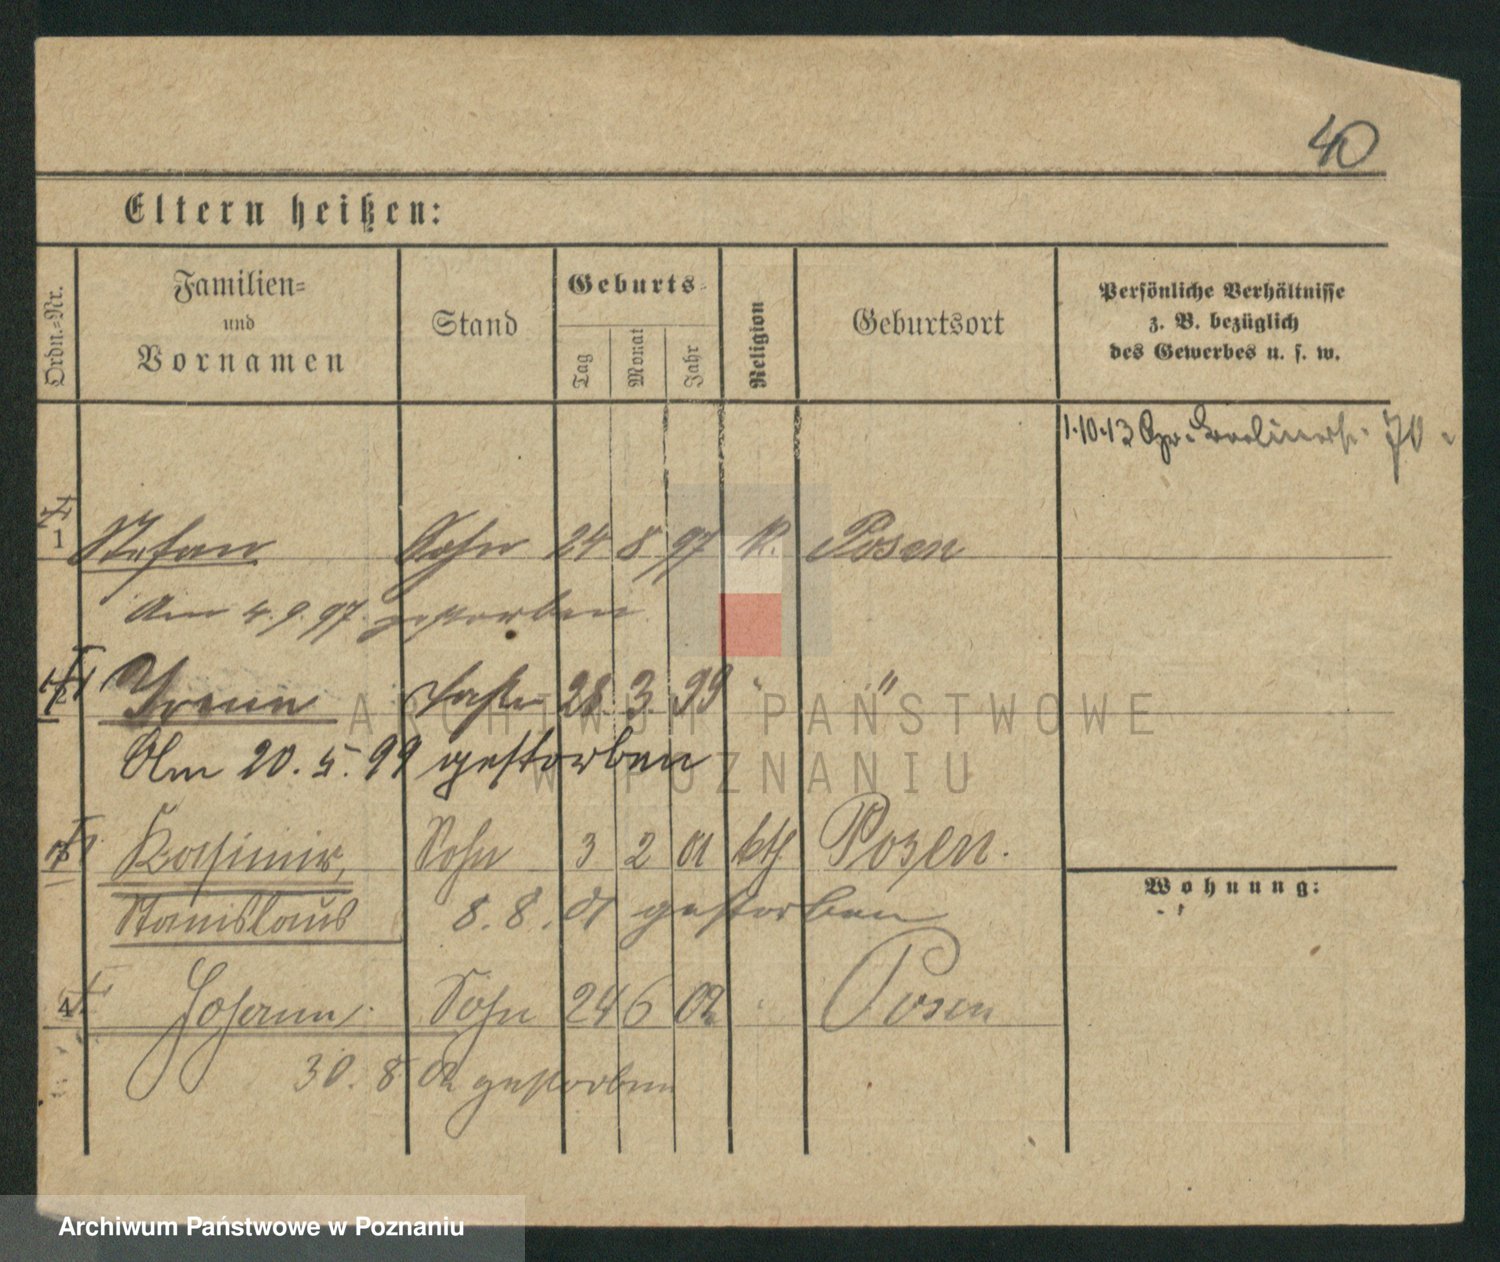 40
Eltern heißen:
Ordn.-Nr.
Familien=
und
Vornamen
Stand
Geburts-
Tag
Monat
Jahr
Religion
Geburtsort
Persönliche Verhältnisse
z. B. bezüglich
des Gewerbes u. s. w.
1.10.13 70
1 Stefan Sohn 24 8 97 K. Posen
Am 4.9.97. gestorben
Irene 28 3 99 "
Am 20.5.99 gestorben
3 Kasimir, Sohn 3 2 01 kth Posen.
Stanislaus 8.8.01 gestorben
4 Johann Sohn 24 6 02 Posen
30.8 02 gestorben
Wohnung:
ARCHIWUM PAŃSTWOWE
W POZNANIU
Archiwum Państwowe w Poznaniu